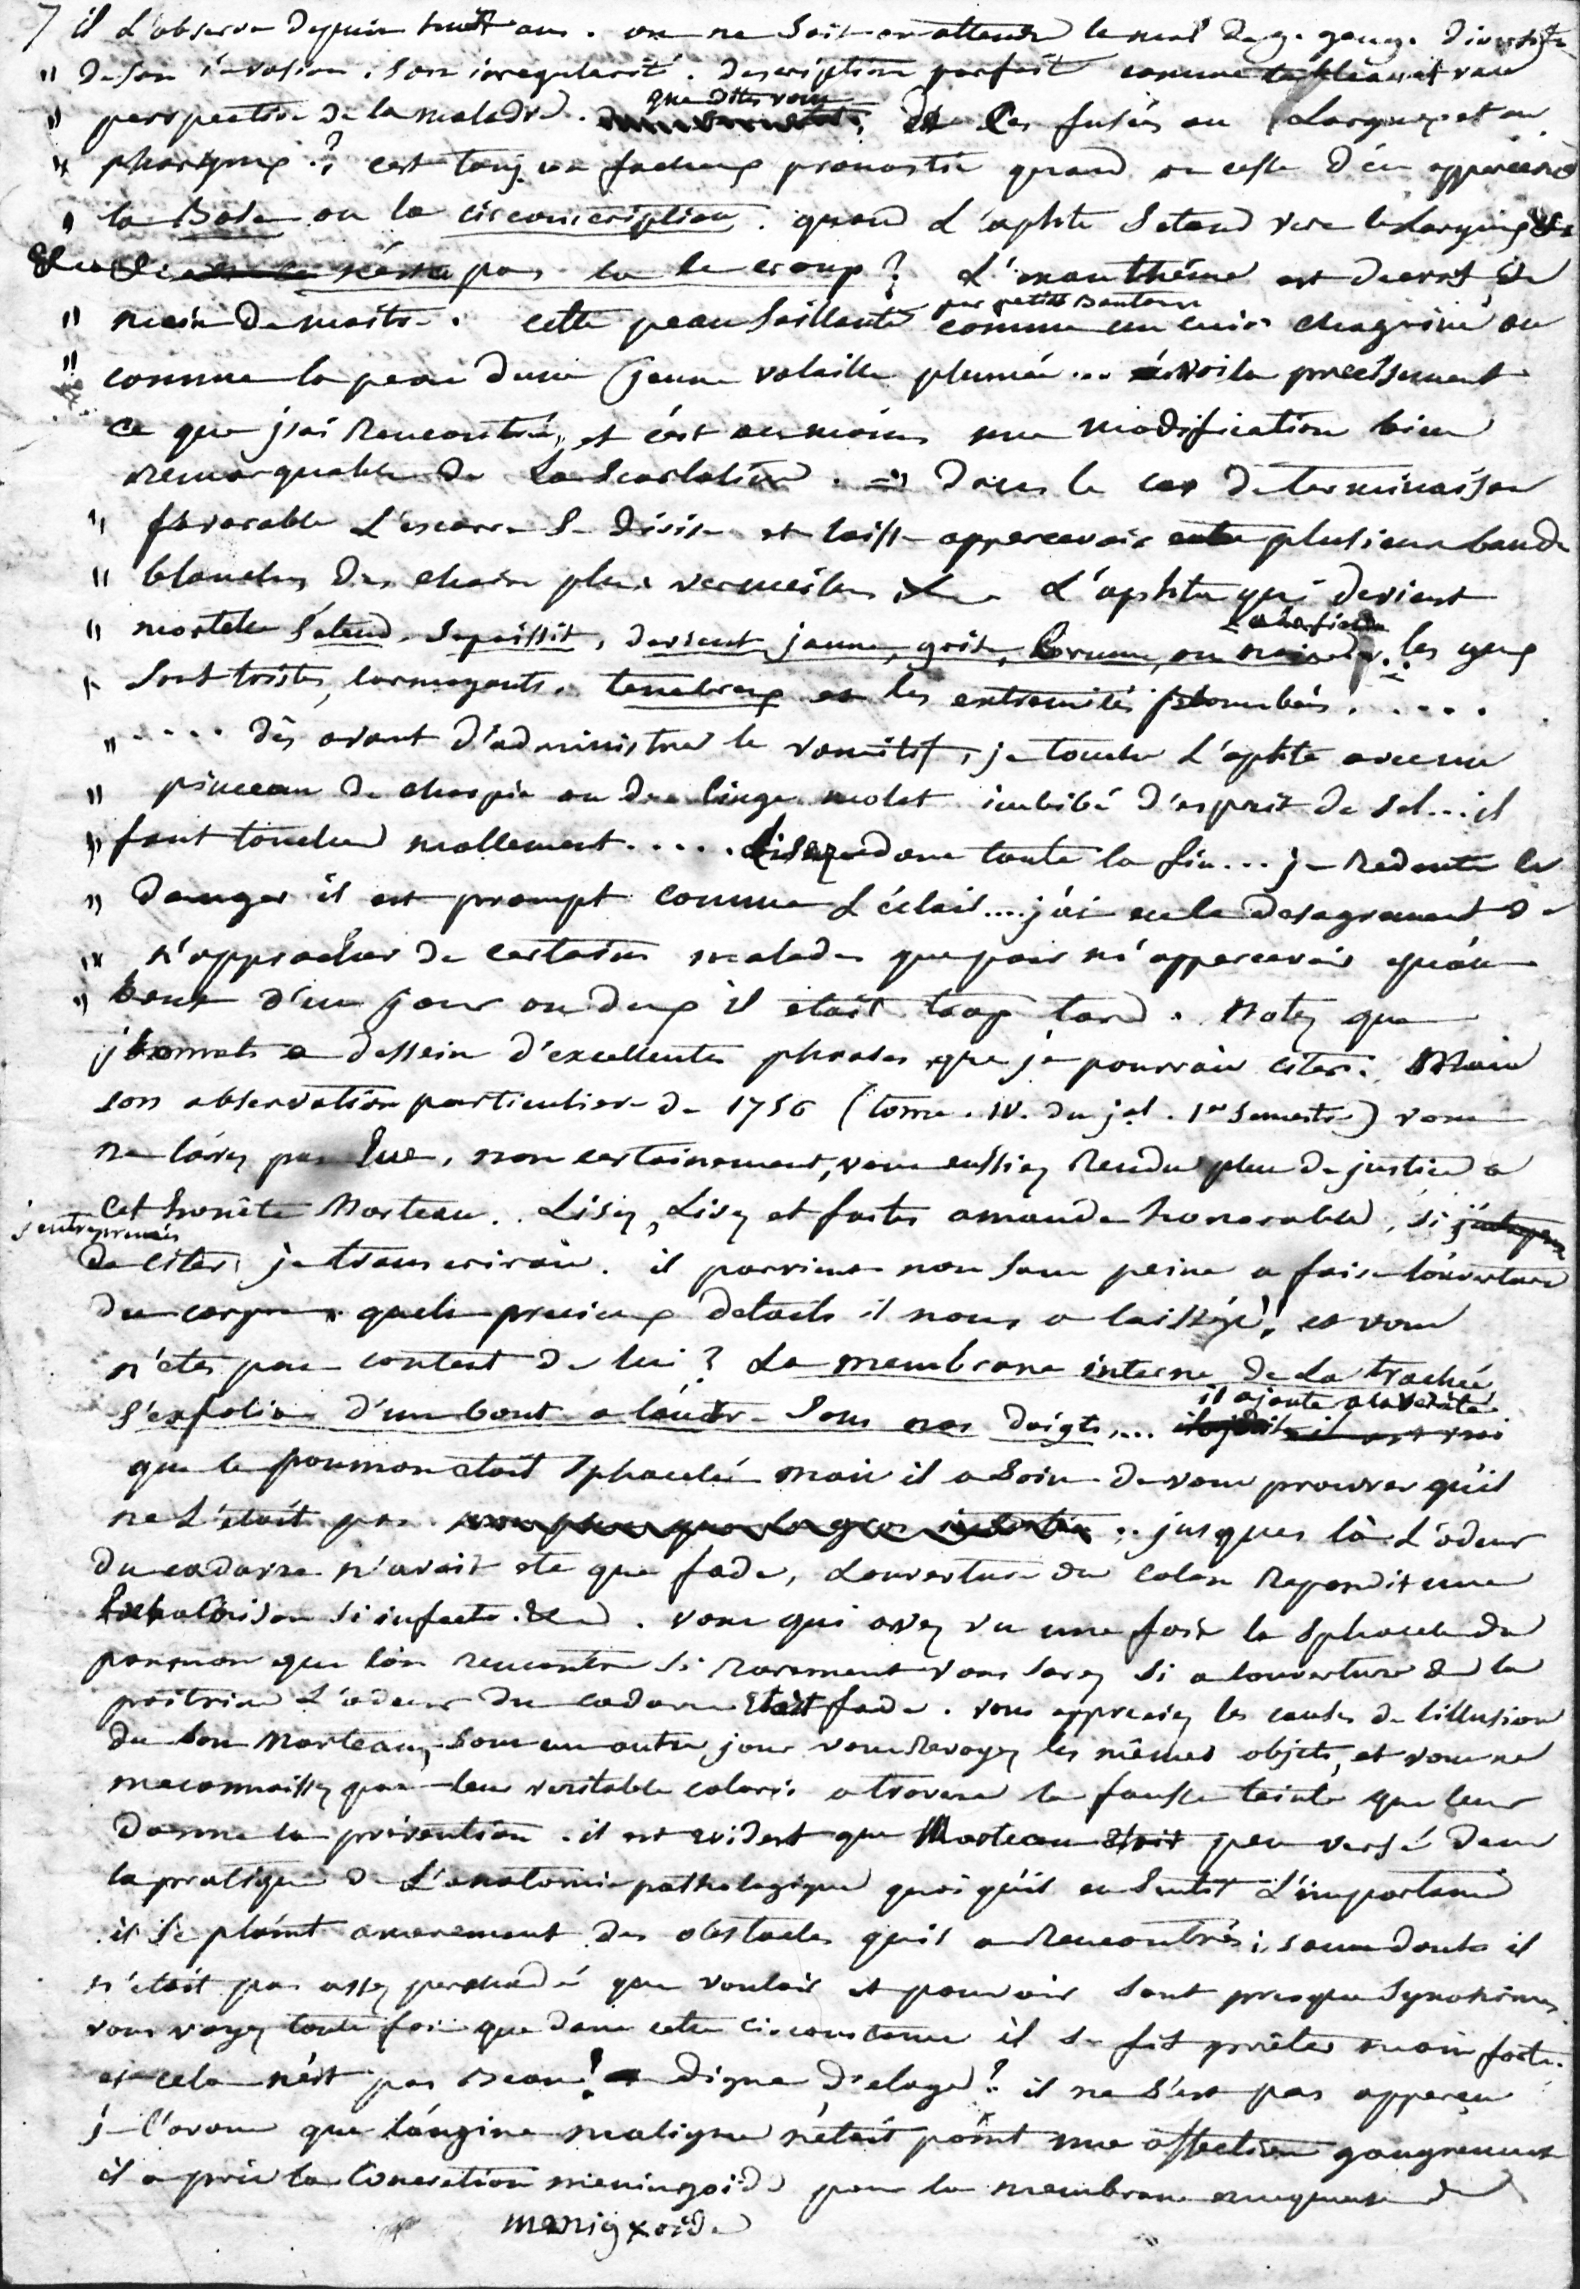 7 il L'observe depuis huit ans. on ne sait en attendre le mal de g. gang. diversité
" de son invasion, son irregularité. description parfaite comme tableau et vraie
" perspective de la maladie. que dites vous des fusées au Larynx et au
" pharynx? c'est touj. un facheux pronostic quand on cesse d'en appercevoir
" la Base ou la circonscription. quand L'aphte s'etend vers le Larynx &c
&c n'est ce pas la le croup? L'exanthême est decrit de
" main de maitre. cette peau saillante par petits Boutons comme un cuir chagriné ou
" comme la peau d'une jeune volaille plumée... voila precisement
ce que j'ai rencontré, et c'est au moins une modification bien
remarquable de La scarlatine. = dans le cas de terminaison
" favorable L'escarre se divise et laisse appercevoir entre plusieurs bandes
" blanches des chairs plus vermeilles. L'aphte qui devient
" mortelle s'etend, s'epaissit, devient jaune, grise, brune, ou noire. les yeux
" sont tristes, larmoyants, tenebreux et les extremités plombées.....
" .... dès avant d'administrer le vomitif, je touche L'aphte avec un
" pinceau de charpie ou de linge molet imbibé d'esprit de sel... il
" faut toucher mollement..... Lisez donc toute la fin... je Redoute le
" danger il est prompt comme L'éclair.... j'ai eu le desagrement de
" n'approcher de certains malades que pour m'appercevoir qu'au
" bout d'un jour ou deux il etait trop tard. Notez que
j'omets a dessein d'excellentes phrases que je pourrais citer. Mais
son observation particuliere de 1756 (tome. IV. du jal. 1er semestre) vous
ne l'avez pas Lue, non certainement, vous eussiez rendu plus de justice a
cet honête Marteau.. Lisez, Lisez et faites amande honorable, si
j'entreprenais
de citer je transcrirais. il parvient non sans peine a faire l'ouverture
du corps. quels precieux details il nous a laissé! et vous
n'etes pas content de lui? La membrane interne de la trachée
s'exfolia d'un bout a l'autre sous nos doigts,... il ajoute a la vérité
que le poumon etait sphacelé mais il a soin de vous prouver qu'il
ne L'était pas. jusques là L'odeur
du cadavre n'avait ete que fade, Louverture du Colon Repandit une
Exhalaison si infecte &c. vous qui avez vu une fois le sphacele du
poumon que l'on rencontre si rarement vous savez si a louverture de la
poitrine L'odeur du cadavre était fade. vous appreciez les causes de l'illusion
du bon Marteau, sous un autre jour vous Revoyez les mêmes objets, et vous ne
meconnaissez pas leur veritable coloris a travers la fausse teinte que leur
donne la prévention. il est evident que Marteau était peu versé dans
la pratique de L'anatomie pathologique quoi qu'il en sentit L'importance
il se plaint amerement des obstacles qu'il a Rencontrés; sans doute il
n'était pas assez persuadé que vouloir et pouvoir sont presque synonimes
vous voyez toute fois que dans cette circonstance il se fit prêter main forte.
et cela n'est pas Beau! digne d'eloge? il ne s'est pas apperçu
je l'avoue que l'angine maligne n'était point une affection gangreneuse
il a pris la Concretion meningoide pour la membrane muqueuse de
menigxoide